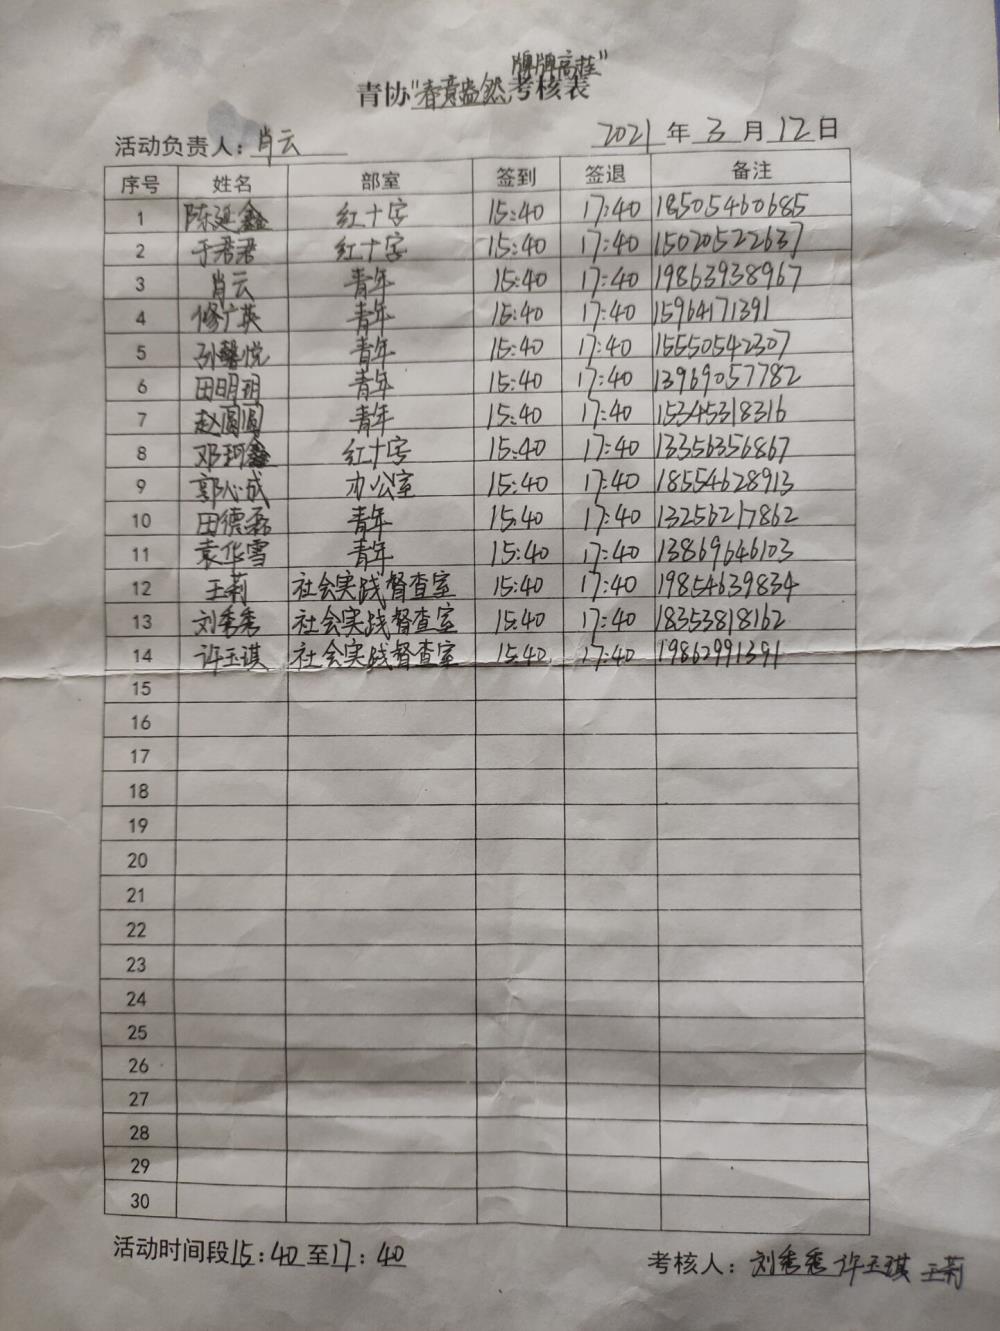 青协"春意盎然,牌牌高挂"考核表
活动负责人：肖云 2021年3月12日
序号 姓名 部室 签到 签退 备注
1 陈延鑫 红十字 15:40 17:40 18505460685
2 于君君 红十字 15:40 17:40 15020522637
3 肖云 青年 15:40 17:40 19863938967
4 修广英 青年 15:40 17:40 15964171391
5 孙馨悦 青年 15:40 17:40 15550542307
6 田明玥 青年 15:40 17:40 13969057782
7 赵圆圆 青年 15:40 17:40 15345318316
8 邓珂鑫 红十字 15:40 17:40 13356356867
9 郭心成 办公室 15:40 17:40 18554628913
10 田德磊 青年 15:40 17:40 13256217862
11 袁华雪 青年 15:40 17:40 13869646103
12 王莉 社会实践督查室 15:40 17:40 19854639834
13 刘秀秀 社会实践督查室 15:40 17:40 18353818162
14 许玉琪 社会实践督查室 15:40 17:40 19862991391
15
16
17
18
19
20
21
22
23
24
25
26
27
28
29
30
活动时间段15:40至17:40 考核人：刘秀秀 许玉琪 王莉